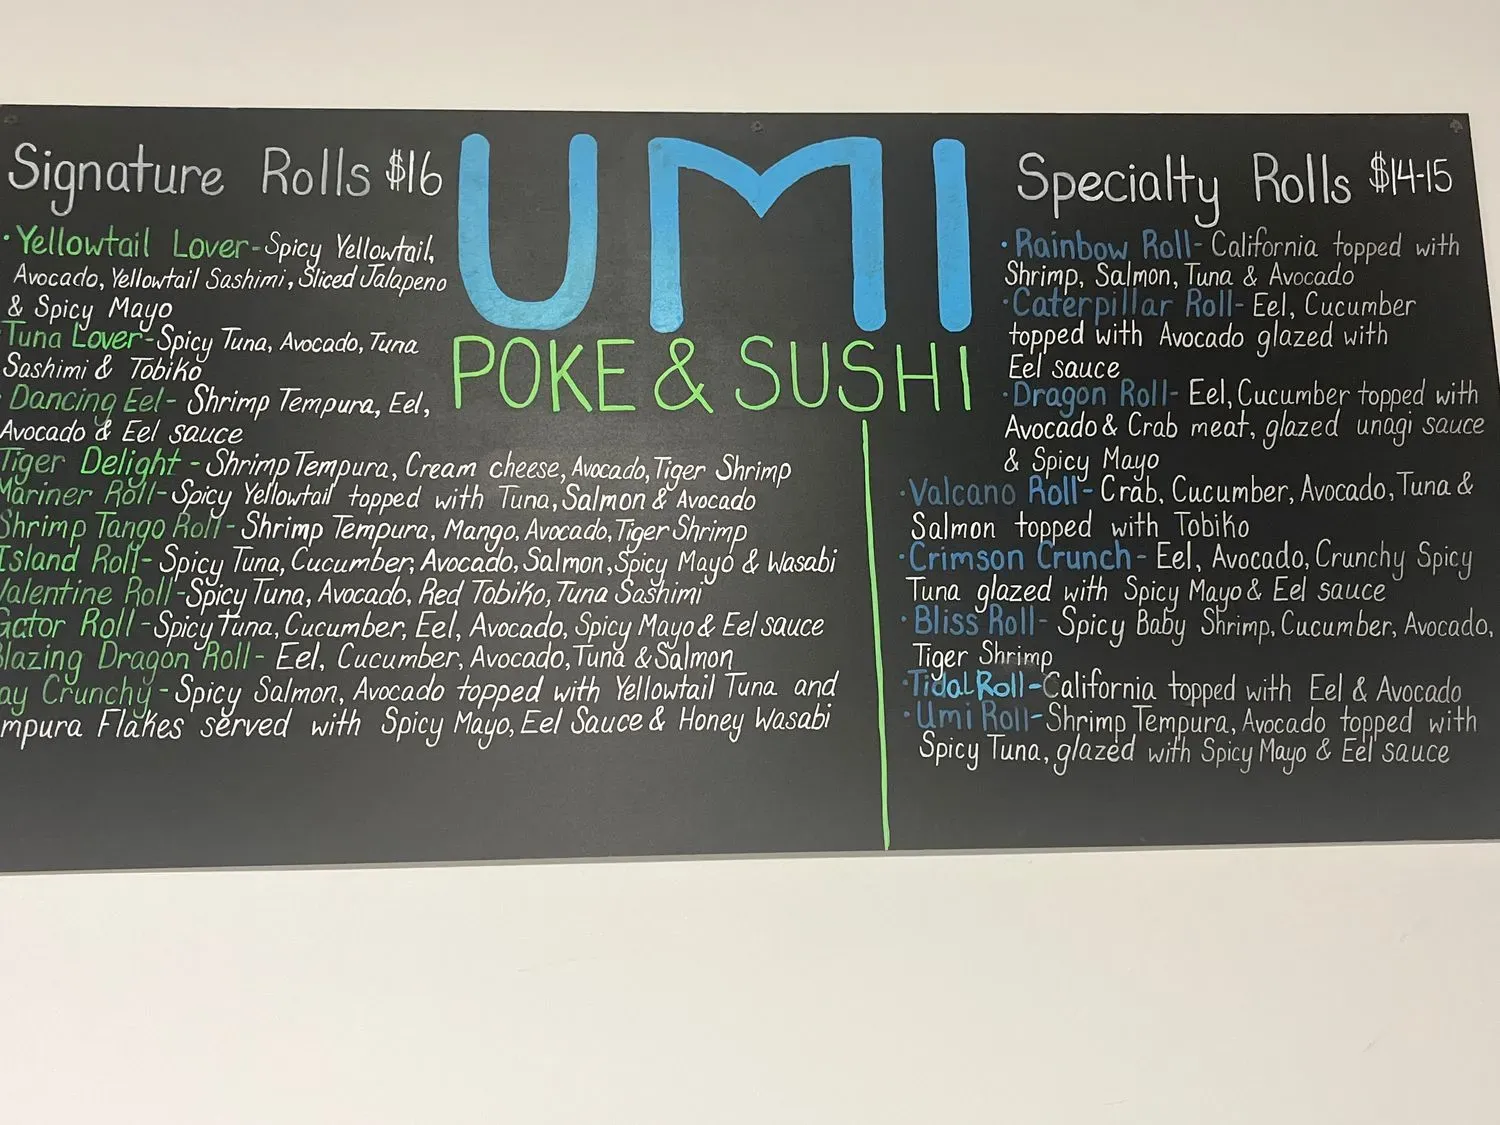 UMI
POKE & SUSHI
Signature Rolls $16
· Yellowtail Lover - Spicy Yellowtail,
Avocado, Yellowtail Sashimi, Sliced Jalapeno
& Spicy Mayo
Tuna Lover - Spicy Tuna, Avocado, Tuna
Sashimi & Tobiko
· Dancing Eel - Shrimp Tempura, Eel,
Avocado & Eel sauce
Tiger Delight - Shrimp Tempura, Cream cheese, Avocado, Tiger Shrimp
Mariner Roll - Spicy Yellowtail topped with Tuna, Salmon & Avocado
Shrimp Tango Roll - Shrimp Tempura, Mango, Avocado, Tiger Shrimp
Island Roll - Spicy Tuna, Cucumber, Avocado, Salmon, Spicy Mayo & Wasabi
Valentine Roll - Spicy Tuna, Avocado, Red Tobiko, Tuna Sashimi
Gator Roll - Spicy Tuna, Cucumber, Eel, Avocado, Spicy Mayo & Eel sauce
Blazing Dragon Roll - Eel, Cucumber, Avocado, Tuna & Salmon
ay Crunchy - Spicy Salmon, Avocado topped with Yellowtail Tuna and
mpura Flakes served with Spicy Mayo, Eel Sauce & Honey Wasabi
Specialty Rolls $14-15
· Rainbow Roll - California topped with
Shrimp, Salmon, Tuna & Avocado
· Caterpillar Roll - Eel, Cucumber
topped with Avocado glazed with
Eel sauce
· Dragon Roll - Eel, Cucumber topped with
Avocado & Crab meat, glazed unagi sauce
& Spicy Mayo
· Valcano Roll - Crab, Cucumber, Avocado, Tuna &
Salmon topped with Tobiko
· Crimson Crunch - Eel, Avocado, Crunchy Spicy
Tuna glazed with Spicy Mayo & Eel sauce
· Bliss Roll - Spicy Baby Shrimp, Cucumber, Avocado,
Tiger Shrimp
· Tidal Roll - California topped with Eel & Avocado
· Umi Roll - Shrimp Tempura, Avocado topped with
Spicy Tuna, glazed with Spicy Mayo & Eel sauce